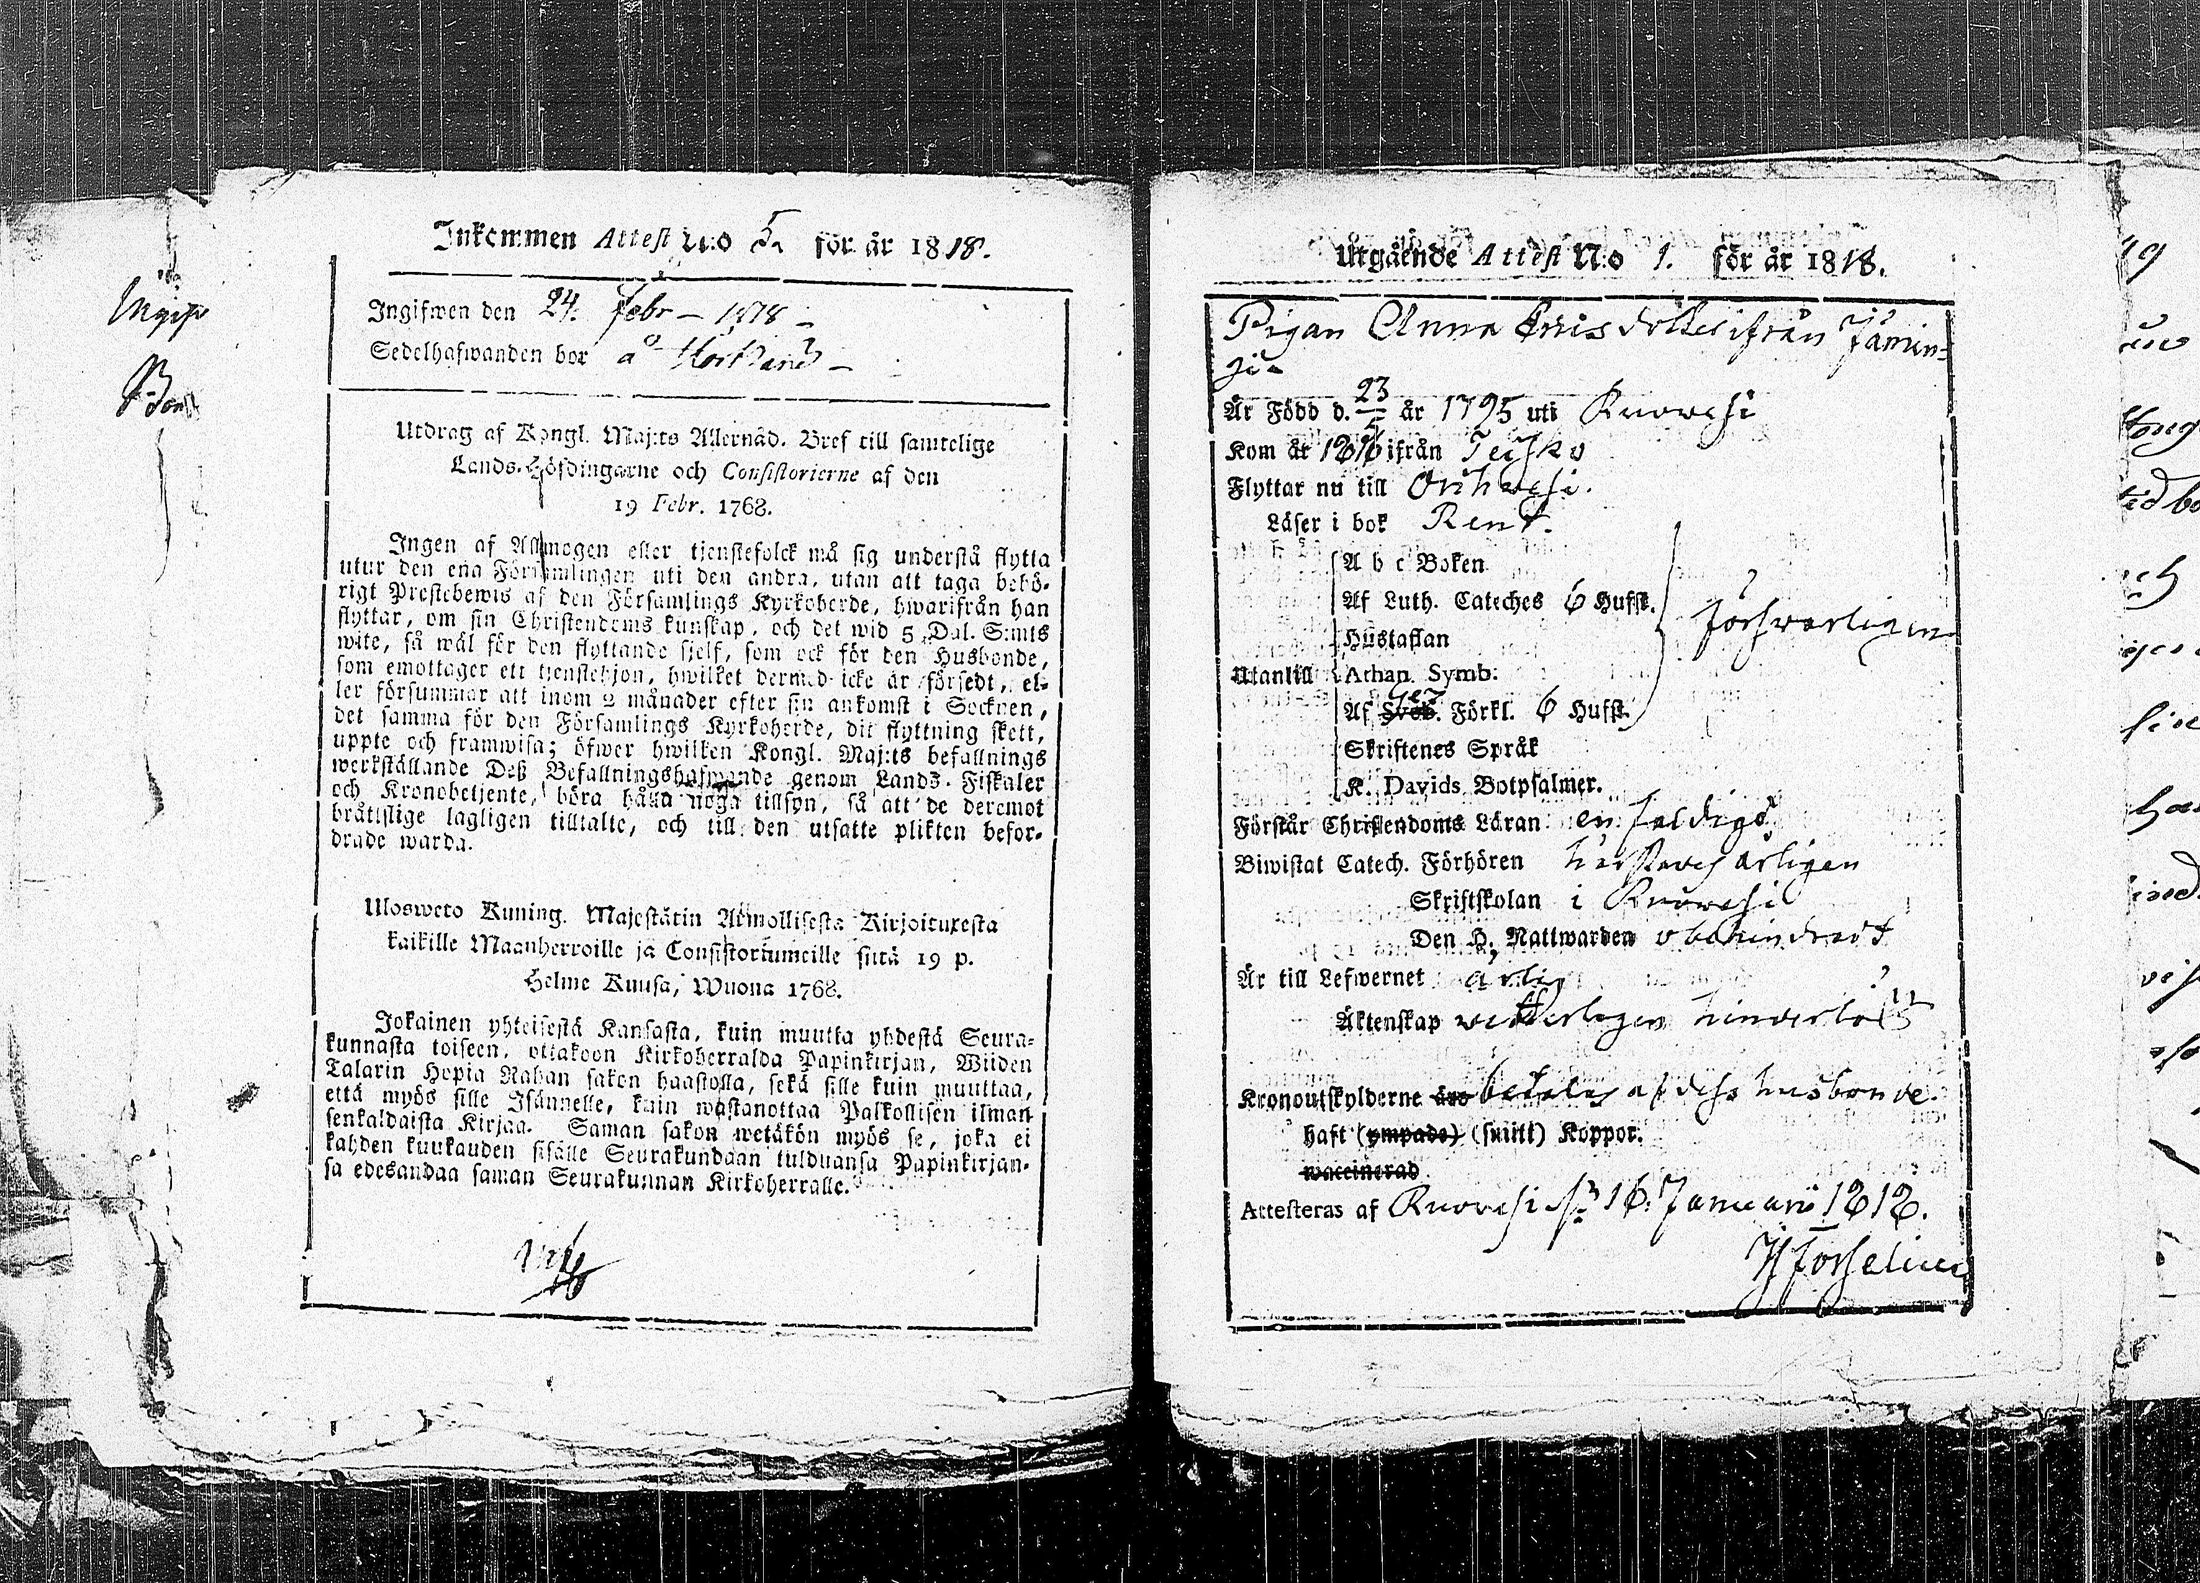 Inkommen Attest N:o 5. för år 1818.
Ingifwen den 24. Febr – 1818 –
Sedelhafwanden bor å
Utdrag af Kongl. Maj:ts Allernåd. Bref till samtelige
Lands-Höfdingarne och Consistorierne af den
19 Febr. 1768.
Ingen af Allmogen eller tjenstefolck må sig understå flytta
utur den ena Församlingen uti den andra, utan att taga behö-
rigt Prestebewis af den Församlings Kyrkoherde, hwarifrån han
flyttar, om sin Christendoms kunskap, och det wid 5 Dal. S:mts
wite, så wäl för den flyttande sjelf, som ock för den Husbonde,
som emottager ett tjenstehjon, hwilket dermed icke är försedt, el-
ler försummar att inom 2 månader efter sin ankomst i Socknen,
det samma för den Församlings Kyrkoherde, dit flyttning skett,
uppte och framwisa; öfwer hwilken Kongl. Maj:ts befallnings
werkställande Deß Befallningshafwande genom Lands-Fiskaler
och Kronobetjente, böra hålla noga tillsyn, så att de deremot
bråttslige lagligen tilltalte, och till den utsatte plikten befor-
drade warda.
Ulosweto Kuning. Majestätin Armollisesta Kirjoituxesta
kaikille Maanherroille ja Consistoriumeille siitä 19 p.
Helme Kuusa, Wuona 1768.
Jokainen yhteisestä Kansasta, kuin muutta yhdestä Seura-
kunnasta toiseen, ottakoon Kirkoherralda Papinkirjan, Wiiden
Talarin Hopia Rahan sakon haastolla, sekä sille kuin muuttaa,
että myös sille Isännelle, kuin wastanottaa Palkollisen ilman
senkaldaista Kirjaa. Saman sakon wetäkön myös se, joka ei
kahden kuukauden sisälle Seurakundaan tulduansa Papinkirjan-
sa edesandaa saman Seurakunnan Kirkoherralle.
Utgående Attest N:o 1. för år 1818.
Pigan Anna Ericsdotter ifrån Jämin-
gi
Är Född d. 23 år 1795 uti Ruowesi
Kom år 1816 ifrån Teisko
Flyttar nu till Orihwesi.
Läser i bok Rent.
A b c Boken
Af Luth. Cateches 6 Hufst.
försvarligen
Hustaflan
Utantill Athan. Symb.
Af Sveb. Förkl. 6 Hufst.
Skriftenes Språk
K. Davids Botpsalmer.
Förstår Christendoms Läran enfaldigt
Biwistat Catech. Förhören årligen
Skriftskolan i Ruowesi
Den H. Nattwarden obehindradt
Är till Lefwernet ärlig
Äktenskap wetterligen hinderlös
Kronoutskylderne äro betalas af dess husbonde.
haft (ympade) (smitt) Koppor.
waccinerad
Attesteras af Ruowesi 16. Januarii 1818.